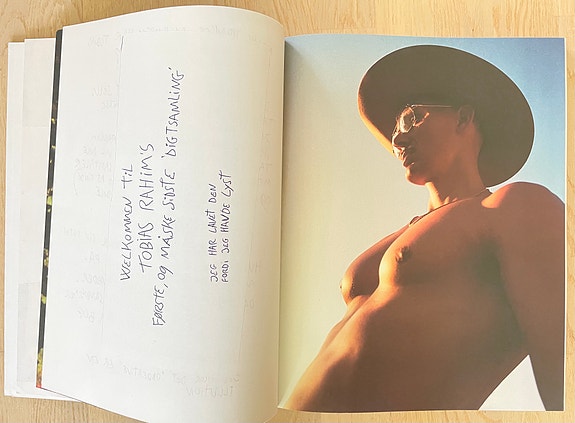 VELKOMMEN TIL
TOBIAS RAHIM'S
FØRSTE, OG MÅSKE SIDSTE 'DIGTSAMLING'
JEG HAR LAVET DEN
FORDI JEG HAVDE LYST